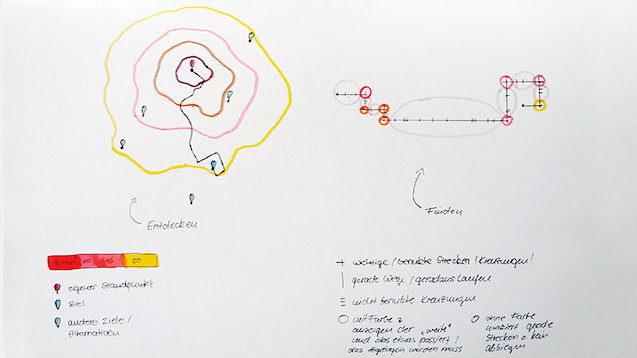 Entdecken
Finden
5min 10 15 20
eigener Standpunkt
Ziel
andere Ziele /
Alternativen
wichtige / benutzte Strecken / Kreuzungen /
gerade Wege / geradeaus laufen
nicht benutzte Kreuzungen
mit Farbe
anzeigen der „weite"
und das etwas passiert /
das abgebogen werden muss
ohne Farbe
markiert gerade
Strecken o. kein
abbiegen